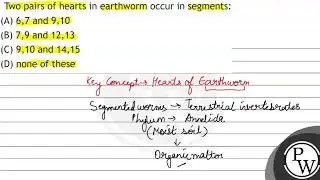 Two pairs of hearts in earthworm occur in segments:
(A) 6,7 and 9,10
(B) 7,9 and 12,13
(C) 9,10 and 14,15
(D) none of these
Key Concept→ Hearts of Earthworm
Segmented worms → Terrestrial invertebrates
Phylum → Annelida
(Moist soil)
↓
Organic matter
PW